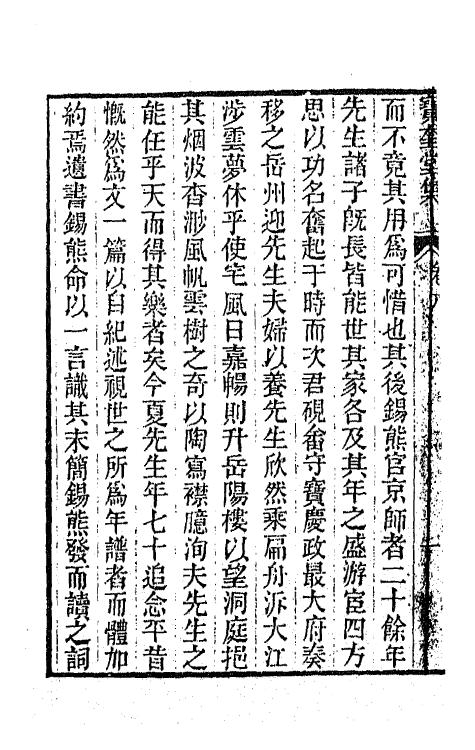 寶奎堂集
而不竟其用爲可惜也其後錫熊官京師者二十餘年
先生諸子旣長皆能世其家各及其年之盛游宦四方
思以功名奮起于時而次君硯畬守寶慶政最大府奏
移之岳州迎先生夫婦以養先生欣然乘扁舟泝大江
涉雲夢休乎使宅風日嘉暢則升岳陽樓以望洞庭挹
其烟波杳渺風帆雲樹之奇以陶寫襟臆洵夫先生之
能任乎天而得其樂者矣今夏先生年七十追念平昔
慨然爲文一篇以自紀述視世之所爲年譜者而體加
約焉遺書錫熊命以一言識其末簡錫熊發而讀之詞